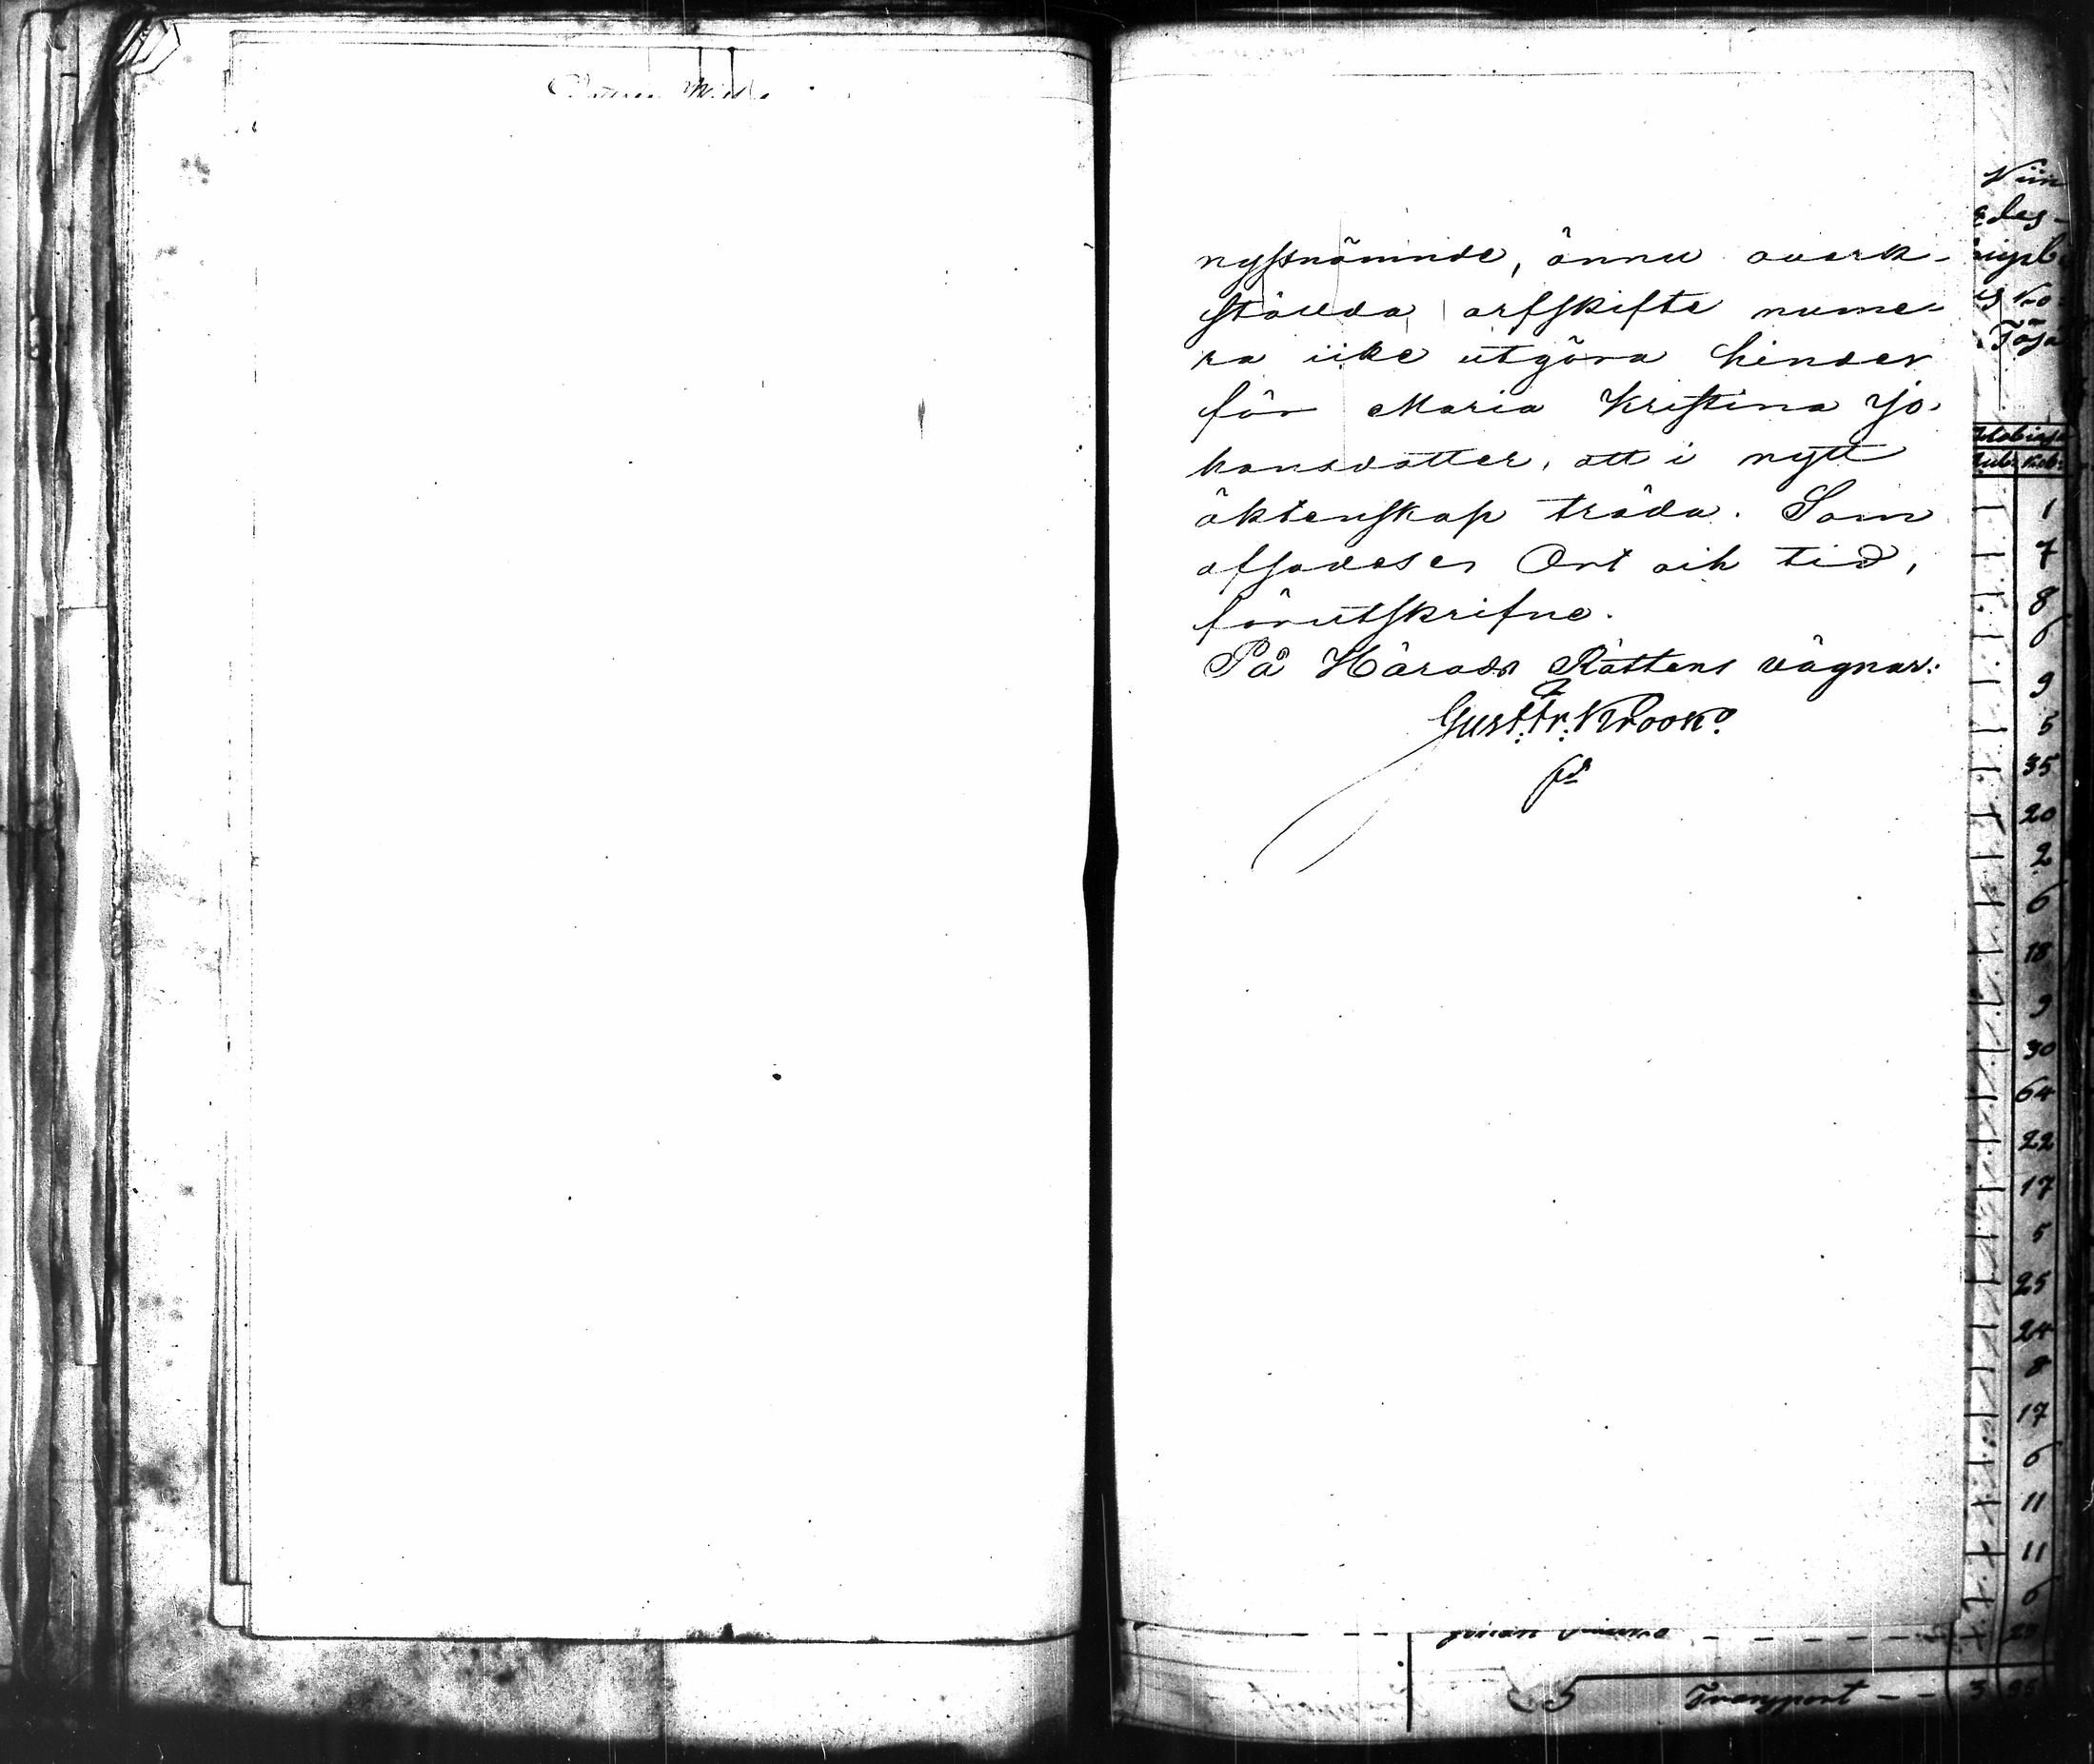 nyssnämnde, ännu overk-
ställda arfskifte nume-
ra icke utgöra hinder
för Maria Kristina Jo-
hansdotter, att i nytt
äktenskap träda. Som
afsades es Ort och tid,
förutskrifne.
På Härads Rättens vägnar:
Gust. Fr. Krook.
1
7
8
6
9
5
35
20
2
6
18
9
30
64
22
17
5
25
24
8
17
6
11
11
6
Transport - - 3 95